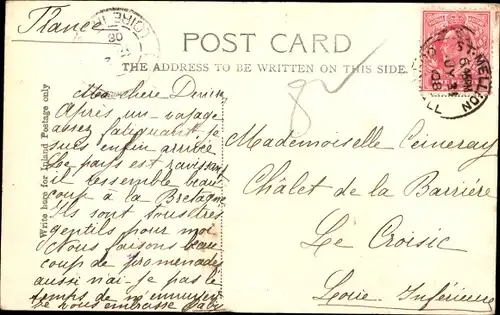 France
LOIRE INF
08
POST CARD
THE ADDRESS TO BE WRITTEN ON THIS SIDE.
ST MELLION
JY 31
08
Write here for Inland Postage only
Ma chère Denise
Après un voyage
assez fatiguant je
suis enfin arrivée
Le pays est ravissant
il ressemble beau
coup à la Bretagne
Ils sont tous très
gentils pour moi
Nous faisons beau
coup de promenades
aussi n'ai-je pas le
temps de m'ennuyer
Je vous embrasse
Mademoiselle Ceineray
Châlet de la Barrière
Le Croisic
Loire Inférieure